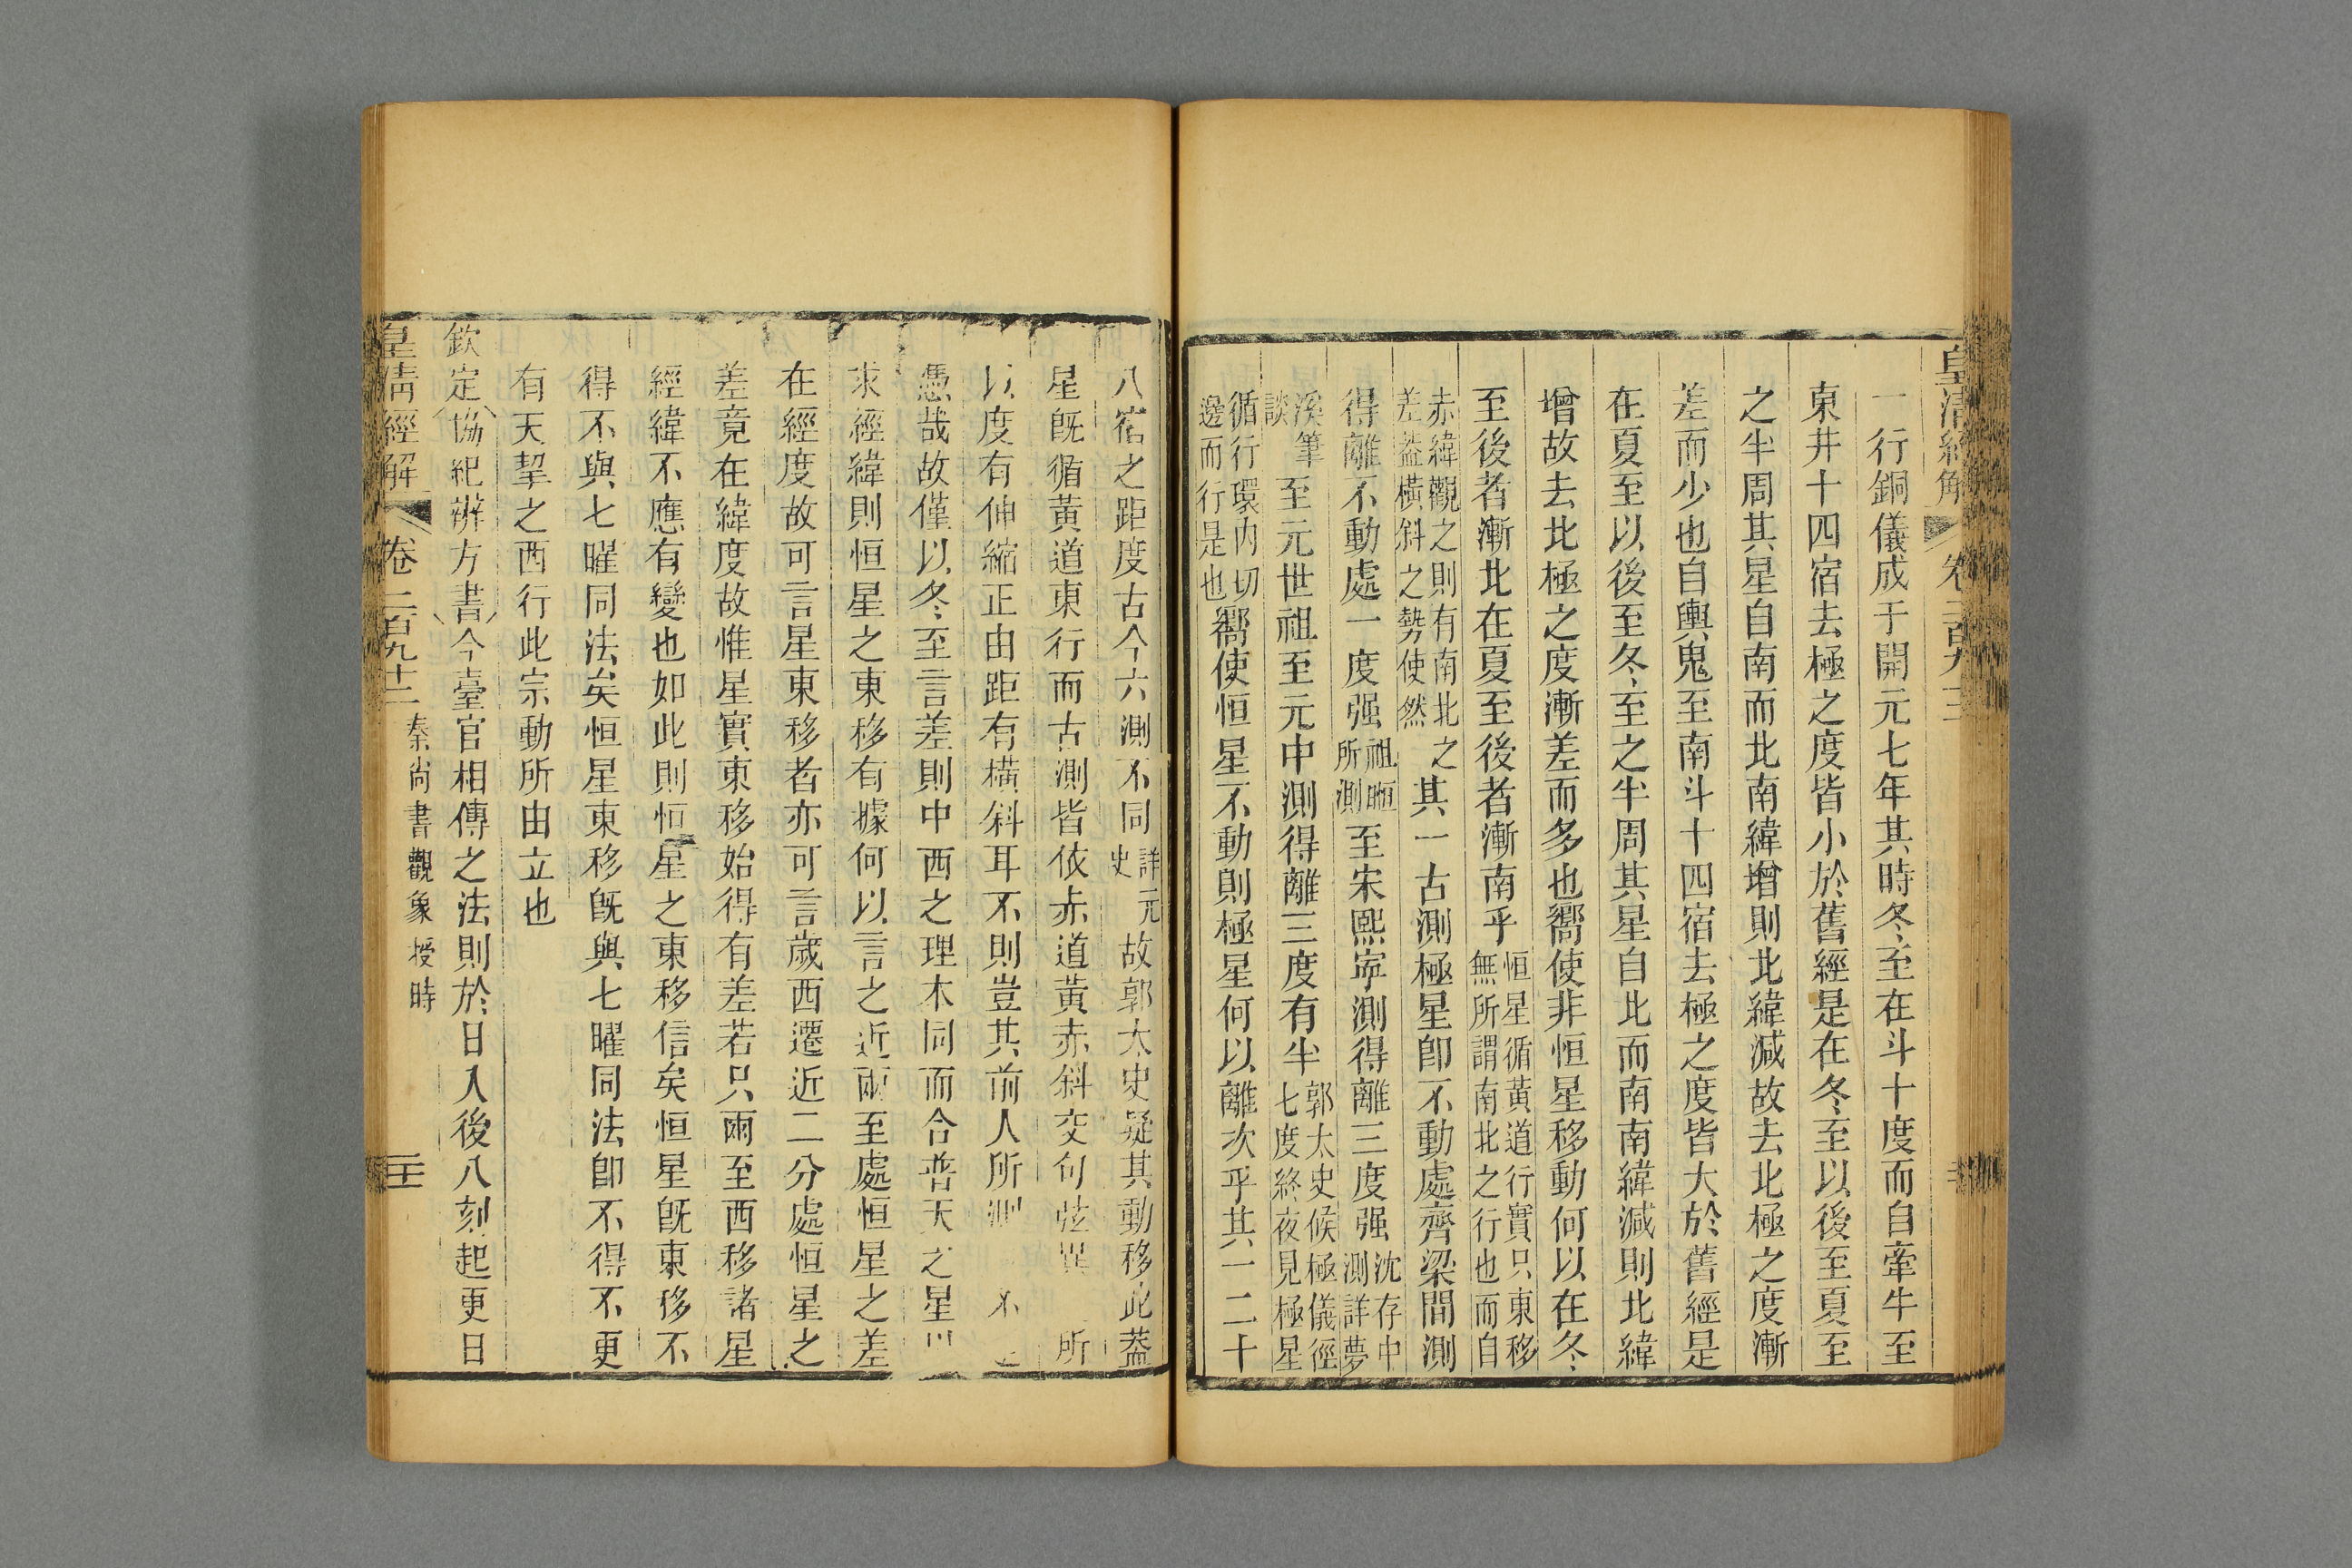 皇清經解 卷二百九十二
一行銅儀成于開元七年其時冬至在斗十度而自牽牛至
東井十四宿去極之度皆小於舊經是在冬至以後至夏至
之半周其星自南而北南緯增則北緯減故去北極之度漸
差而少也自輿鬼至南斗十四宿去極之度皆大於舊經是
在夏至以後至冬至之半周其星自北而南南緯減則北緯
增故去北極之度漸差而多也嚮使非恒星移動何以在冬
至後者漸北在夏至後者漸南乎恒星循黃道行實只東移無所謂南北之行也而自
赤緯觀之則有南北之差蓋橫斜之勢使然其一古測極星卽不動處齊梁間測
得離不動處一度强祖暅所測至宋熙寧測得離三度强沈存中測詳夢
溪筆談至元世祖至元中測得離三度有半郭太史候極儀徑七度終夜見極星
循行環内切邊而行是也嚮使恒星不動則極星何以離次乎其一二十
八宿之距度古今六測不同詳元史故郭太史疑其動移此蓋
星旣循黃道東行而古測皆依赤道黃赤斜交句弦異所
以度有伸縮正由距有橫斜耳不則豈其前人所測不
憑哉故僅以冬至言差則中西之理本同而合普天之星以
求經緯則恒星之東移有據何以言之近兩至處恒星之差
在經度故可言星東移者亦可言歲西遷近二分處恒星之
差竟在緯度故惟星實東移始得有差若只兩至西移諸星
經緯不應有變也如此則恒星之東移信矣恒星旣東移不
得不與七曜同法矣恒星東移旣與七曜同法卽不得不更
有天挈之西行此宗動所由立也
欽定協紀辨方書今臺官相傳之法則於日入後八刻起更日
皇清經解 卷二百九十二 秦尚書觀象授時 二十